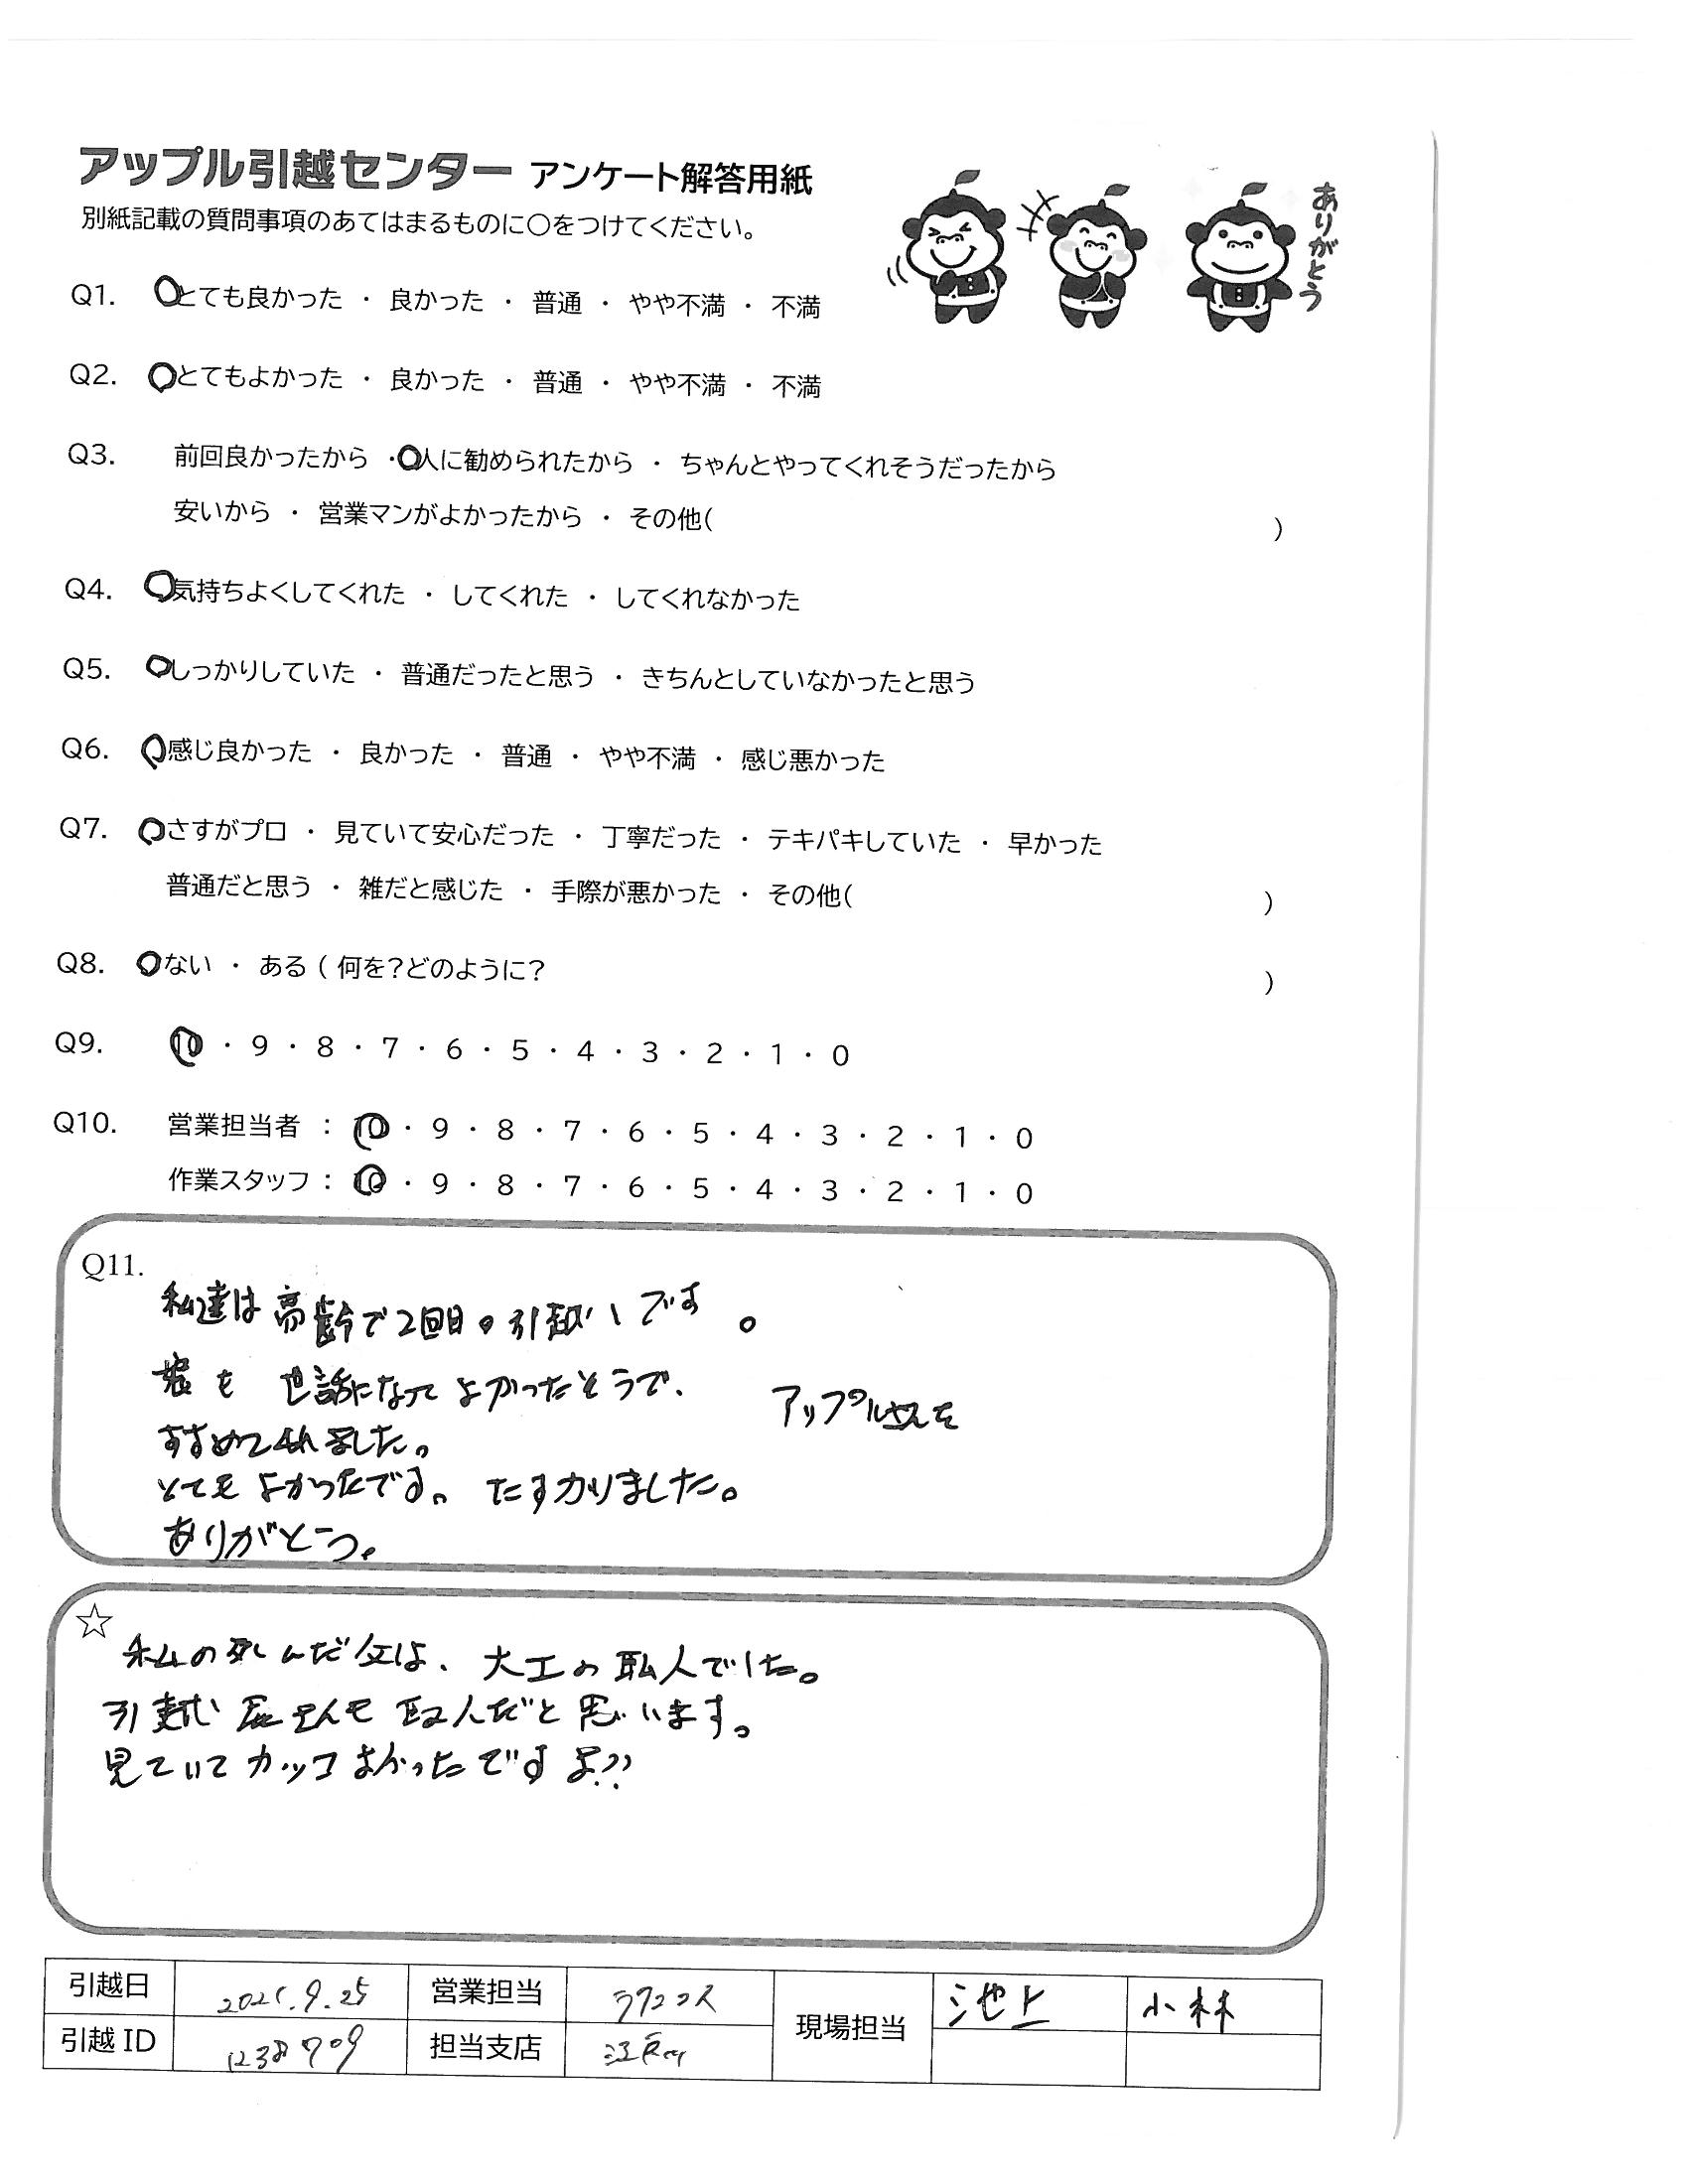 アップル引越センター アンケート解答用紙
別紙記載の質問事項のあてはまるものに○をつけてください。
ありがとう
Q1. とても良かった ・ 良かった ・ 普通 ・ やや不満 ・ 不満
Q2. とてもよかった ・ 良かった ・ 普通 ・ やや不満 ・ 不満
Q3. 前回良かったから ・ 人に勧められたから ・ ちゃんとやってくれそうだったから
安いから ・ 営業マンがよかったから ・ その他( )
Q4. 気持ちよくしてくれた ・ してくれた ・ してくれなかった
Q5. しっかりしていた ・ 普通だったと思う ・ きちんとしていなかったと思う
Q6. 感じ良かった ・ 良かった ・ 普通 ・ やや不満 ・ 感じ悪かった
Q7. さすがプロ ・ 見ていて安心だった ・ 丁寧だった ・ テキパキしていた ・ 早かった
普通だと思う ・ 雑だと感じた ・ 手際が悪かった ・ その他( )
Q8. ない ・ ある ( 何を?どのように? )
Q9. 10 ・ 9 ・ 8 ・ 7 ・ 6 ・ 5 ・ 4 ・ 3 ・ 2 ・ 1 ・ 0
Q10. 営業担当者 : 10 ・ 9 ・ 8 ・ 7 ・ 6 ・ 5 ・ 4 ・ 3 ・ 2 ・ 1 ・ 0
作業スタッフ : 10 ・ 9 ・ 8 ・ 7 ・ 6 ・ 5 ・ 4 ・ 3 ・ 2 ・ 1 ・ 0
Q11.
私達は高齢で2回目の引越しです。
娘も世話になってよかったそうで、アップルさんを
すすめてくれました。
とてもよかったです。たすかりました。
ありがとう。
☆
私の死んだ父は、大工の職人でした。
引越し屋さんも職人だと思います。
見ていてカッコよかったですよ??
引越日 2025.9.25 営業担当 現場担当 池上 小林
引越 ID 1238709 担当支店 江戸川